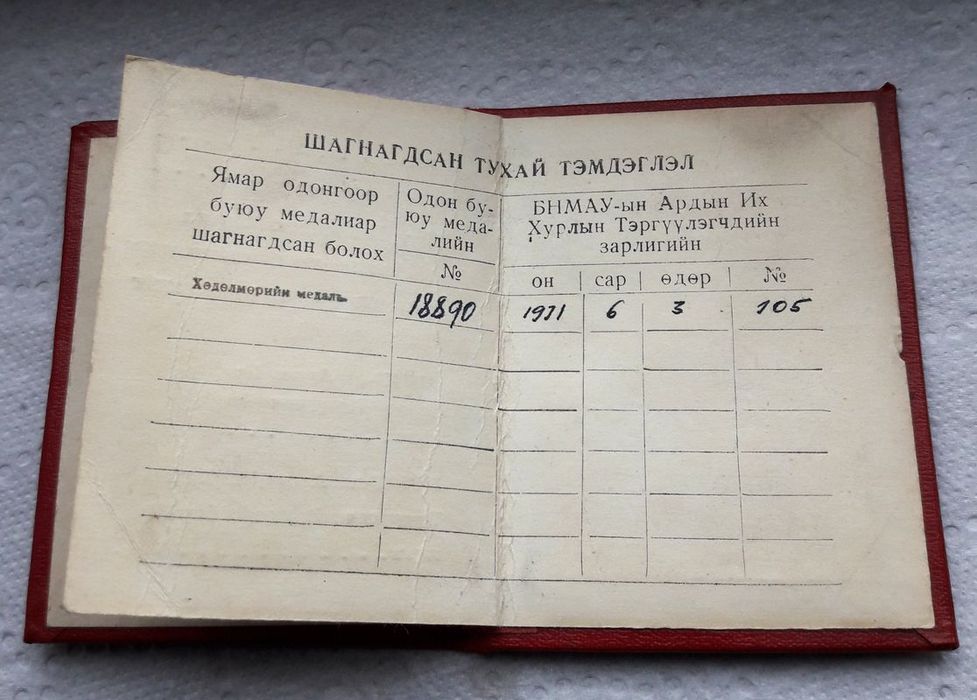 ШАГНАГДСАН ТУХАЙ ТЭМДЭГЛЭЛ
Ямар одонгоор
буюу медалиар
шагнагдсан болох
Одон бу-
юу меда-
лийн
№
БНМАУ-ын Ардын Их
Хурлын Тэргүүлэгчдийн
зарлигийн
он сар өдөр №
Хөдөлмөрийн медаль 18890 1971 6 3 105